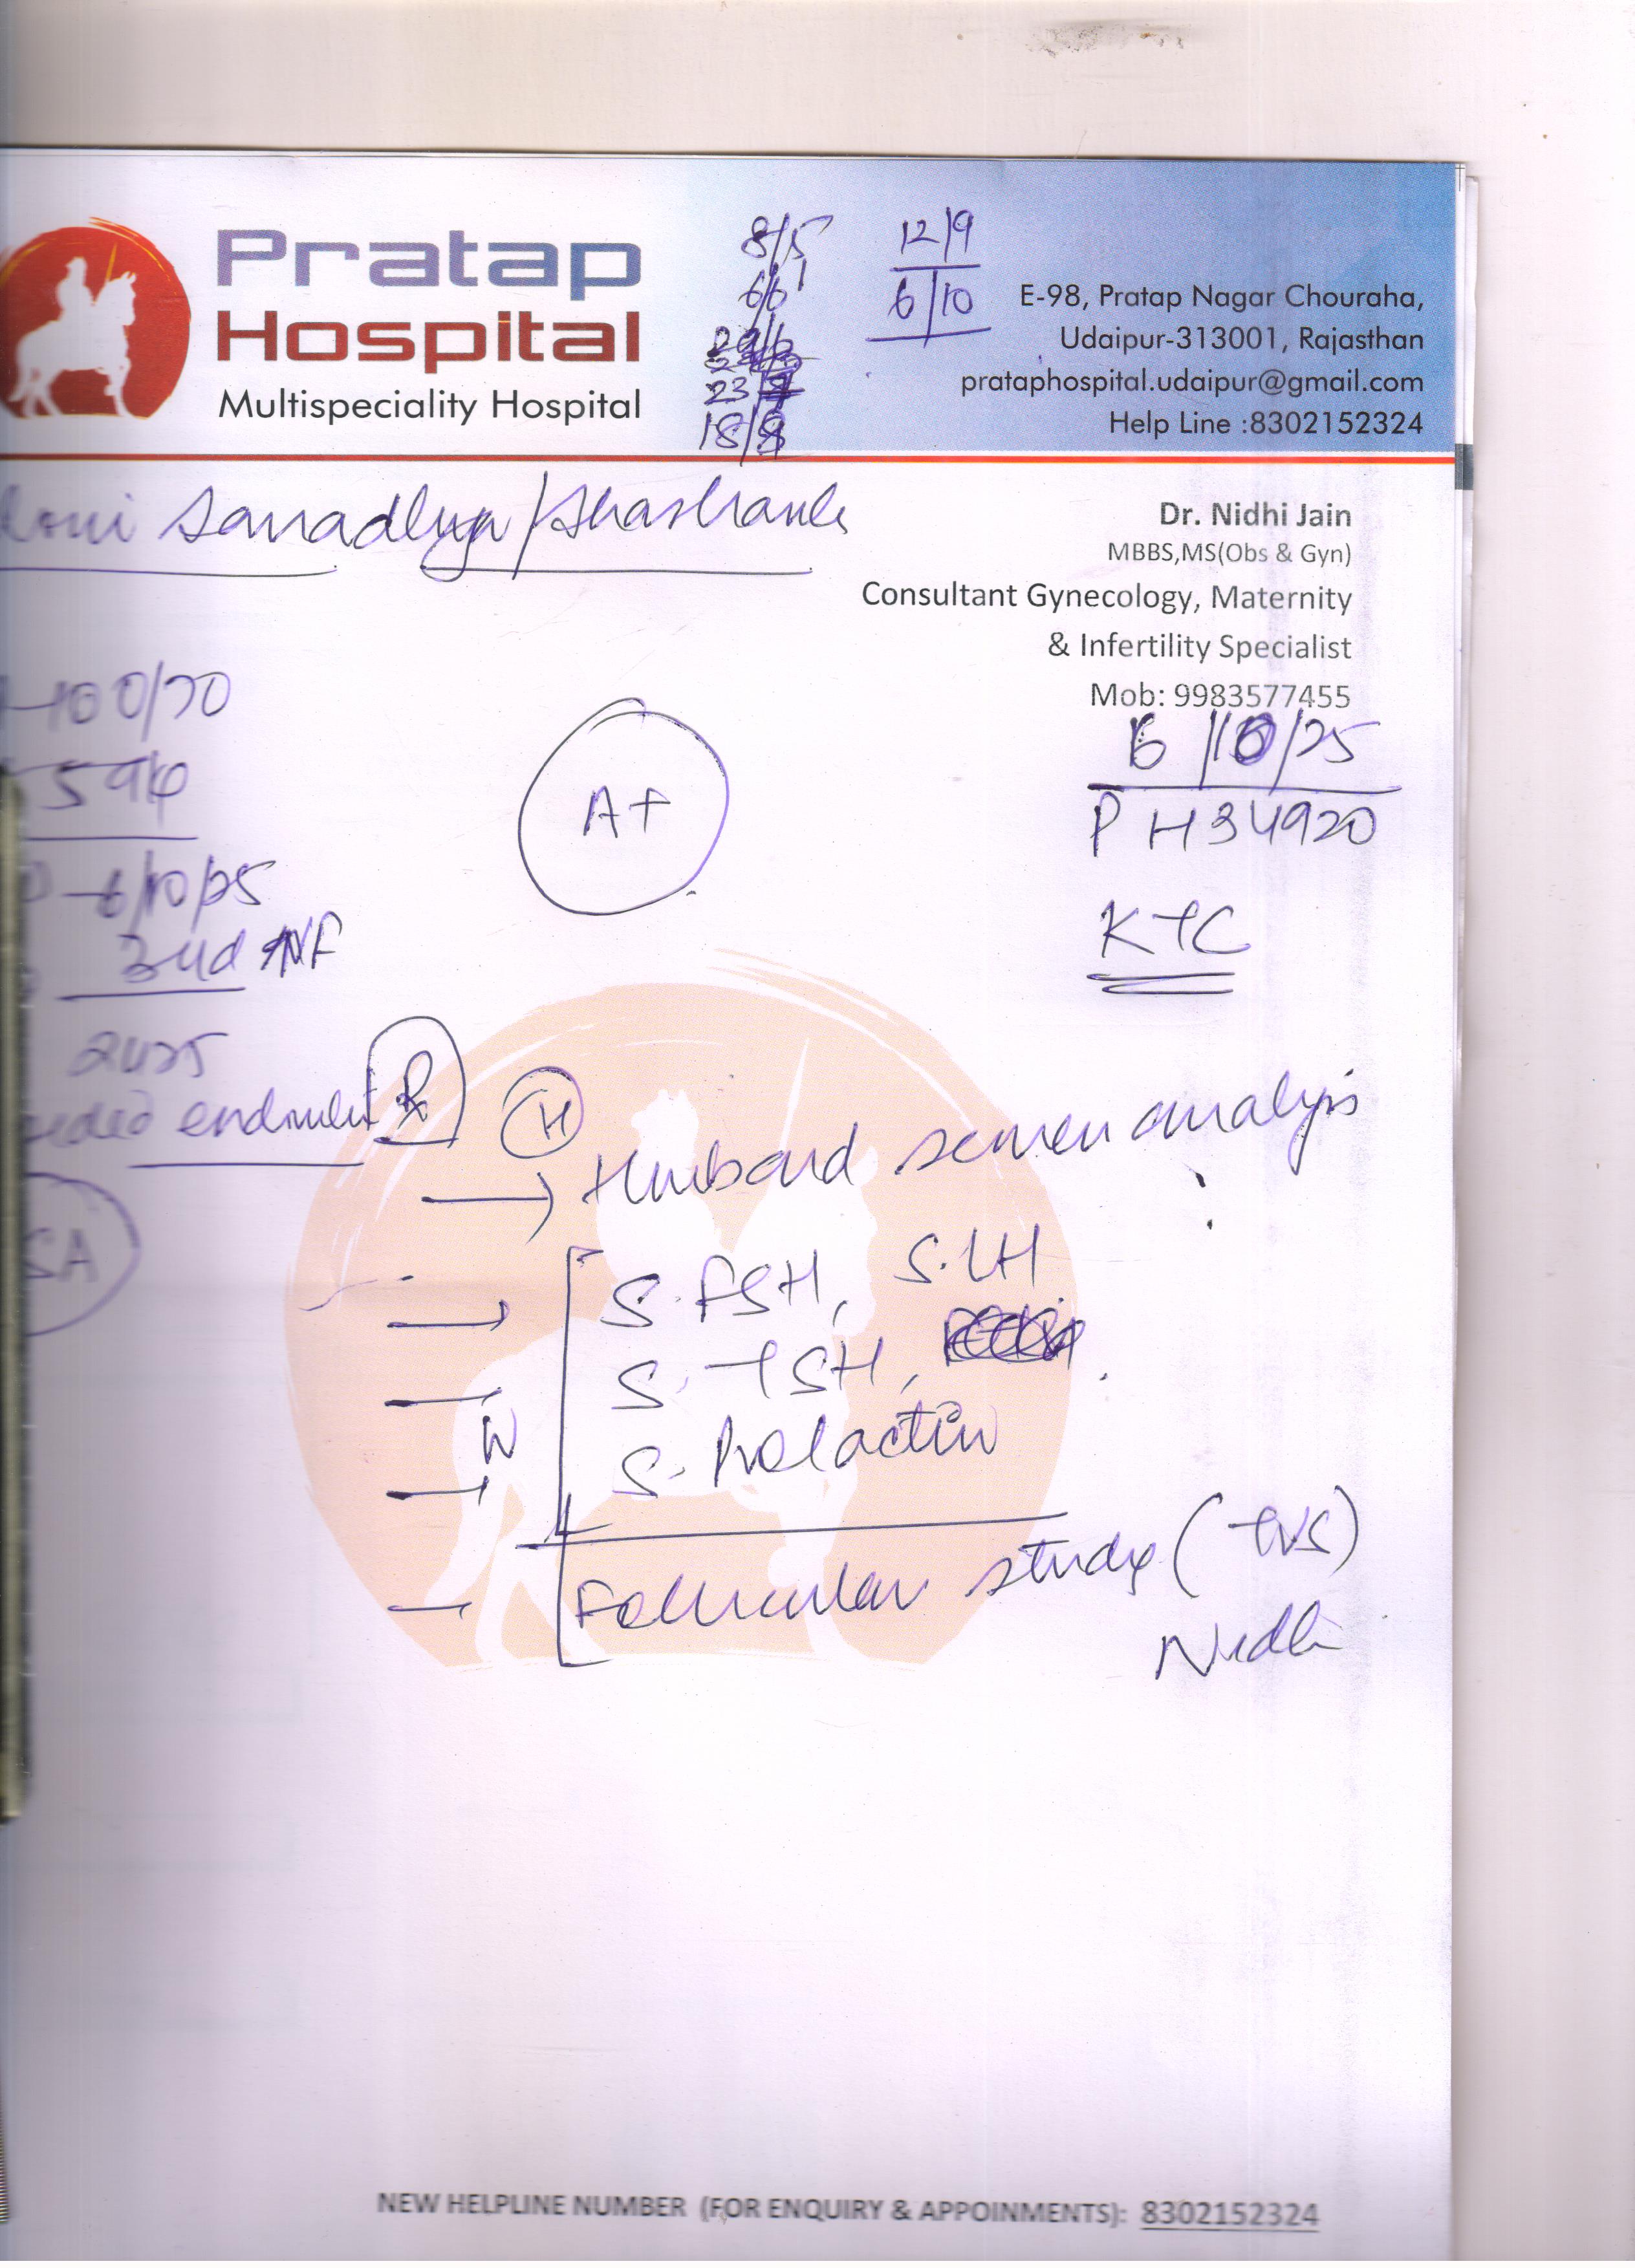 Pratap
Hospital
Multispeciality Hospital
8/5
6/6
29/6
23/7
18/8
12/9
6/10
E-98, Pratap Nagar Chouraha,
Udaipur-313001, Rajasthan
prataphospital.udaipur@gmail.com
Help Line :8302152324
Sanadhya/Shashank
Dr. Nidhi Jain
MBBS,MS(Obs & Gyn)
Consultant Gynecology, Maternity
& Infertility Specialist
Mob: 9983577455
6/10/25
PH34920
KTC
100/70
A+
6/10/25
R
H
Husband semen analysis
S. FSH, S. LH
S. TSH,
W
S. Prolactin
Follicular study (TVS)
Nidhi
SA
NEW HELPLINE NUMBER (FOR ENQUIRY & APPOINMENTS): 8302152324